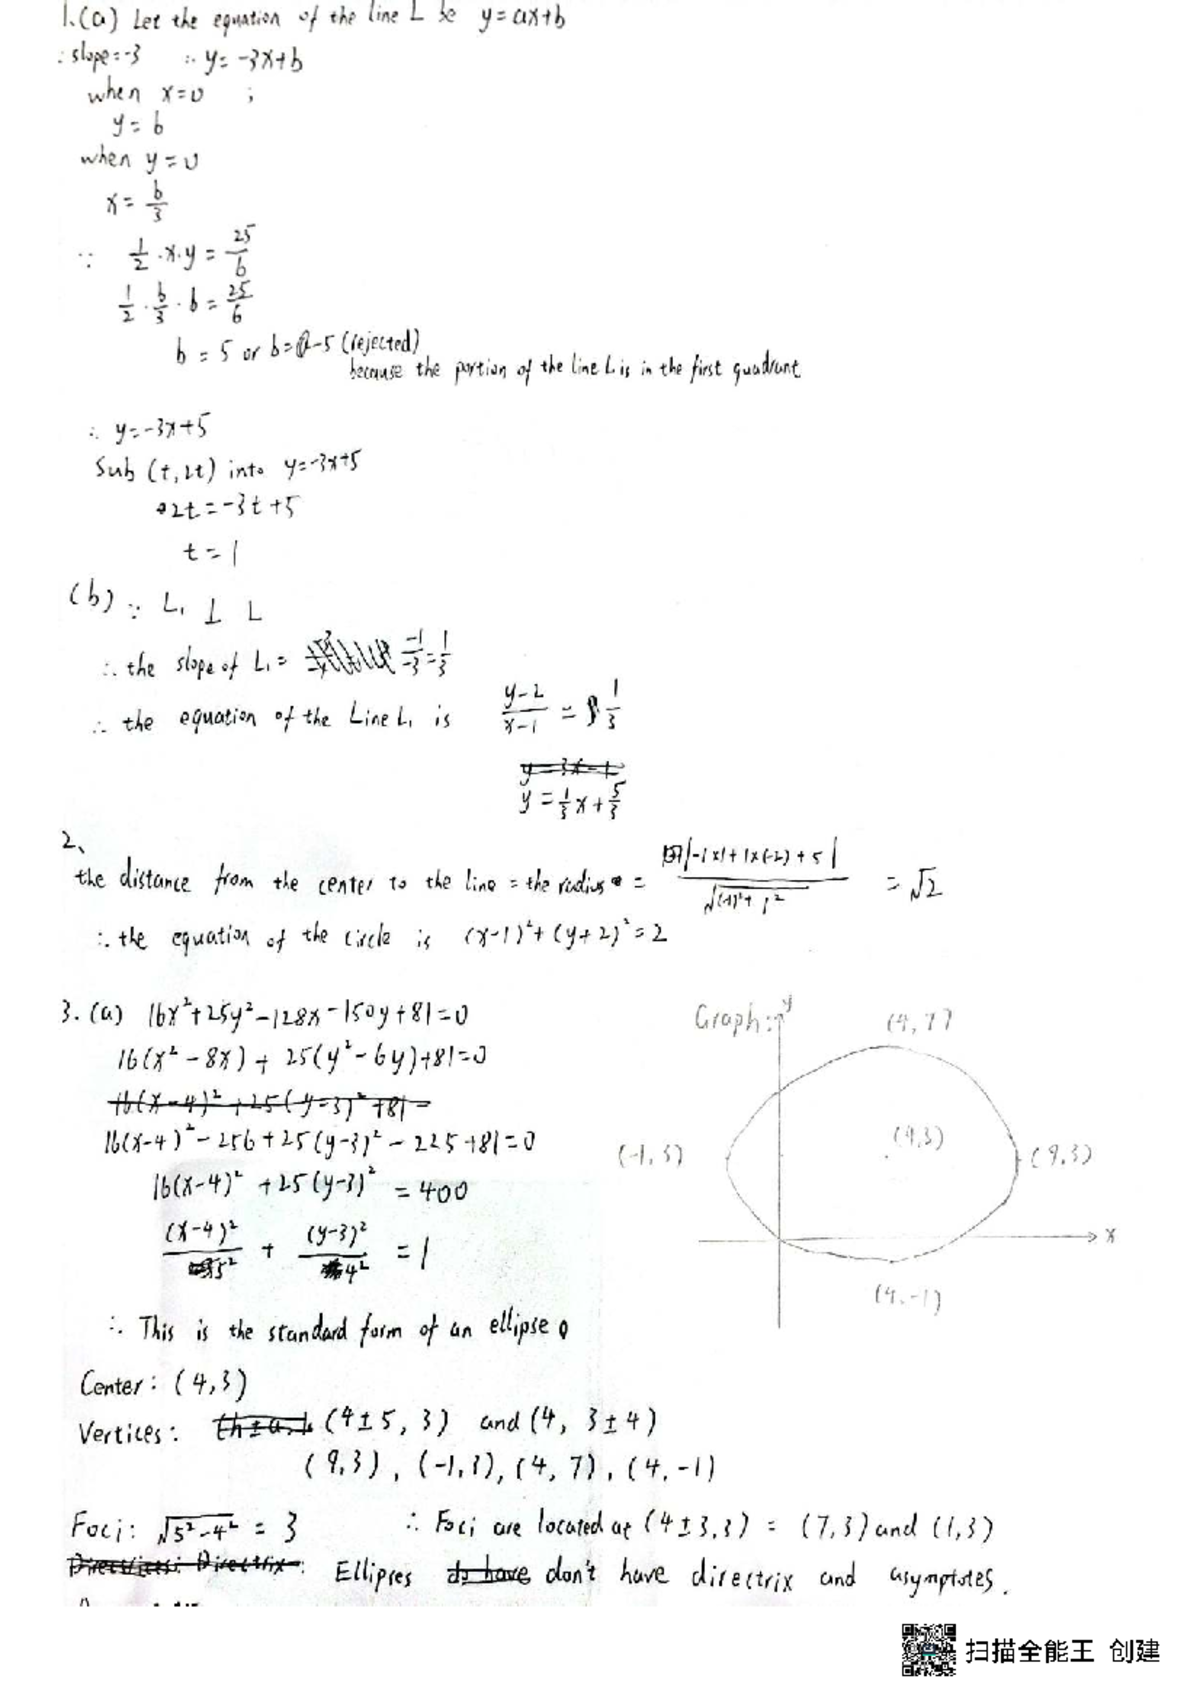 1.(a) Let the equation of the line L be y=ax+b
∵ slope=-3 ∴ y= -3x+b
when x=0 ;
y= b
when y=0
x= b/3
∵ 1/2 ·x·y = 25/6
1/2 · b/3 · b = 25/6
b = 5 or b= -5 (rejected)
because the portion of the line L is in the first quadrant
∴ y=-3x+5
Sub (t,2t) into y=-3x+5
2t=-3t+5
t=1
(b) ∵ L₁ ⊥ L
∴ the slope of L₁= -1/-3=1/3
∴ the equation of the Line L₁ is y-2/x-1 = 1/3
y = 1/3 x + 5/3
2、
the distance from the center to the line = the radius = |-1×1+1×(-2)+5|/√(-1)²+1² = √2
∴ the equation of the circle is (x-1)²+(y+2)²=2
3. (a) 16x²+25y²-128x-150y+81=0
16(x²-8x)+ 25(y²-6y)+81=0
16(x-4)²+25(y-3)²+81=
16(x-4)²-256+25(y-3)²-225+81=0
16(x-4)²+25(y-3)² = 400
(x-4)²/5² + (y-3)²/4² = 1
∴ This is the standard form of an ellipse
Center: (4,3)
Vertices: (4±5, 3) and (4, 3±4)
(9,3), (-1,3), (4,7), (4,-1)
Foci: √5²-4² = 3 ∴ Foci are located at (4±3,3) = (7,3) and (1,3)
Ellipses do have don't have directrix and asymptotes.
Graph: y
(4,7)
(-1,3)
(4,3)
(9,3)
x
(4,-1)
扫描全能王 创建